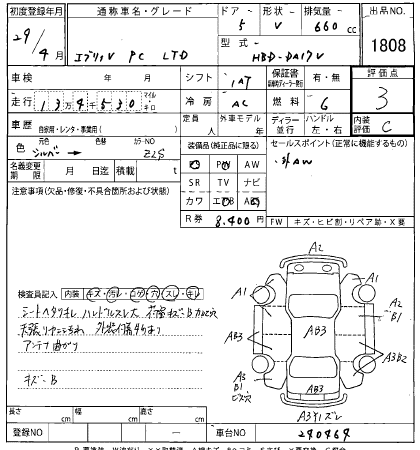 初度登録年月 通称車名・グレード ドア 形状 排気量 出品NO
29/4月 エブリィV PC LTD 5 V 660cc 1808
型式 HBD-DA17V
車検 年 月 シフト IAT 保証書 有・無 評価点
走行 13万4千530 マイル キロ 冷房 AC 燃料 G 3
車歴 自家用・レンタ・事業用( ) 定員 人 外車モデル 年 ディーラー 並行 ハンドル 左・右 内装評価 C
色 元色 シルバー 色替 カラーNO Z2S 装備品(純正品に限る) セールスポイント(正常に機能するもの)
・社外AW
名義変更期限 月 日迄 積載 t PS PW AW
注意事項(欠品・修復・不具合箇所および状態) SR TV ナビ
カワ エアB ABS
R券 8,400円 FW キズ・ヒビ割・リペア跡・X要
A2
A1 A1
B1
AB3 AB3
A3B2
A3
B1
AB3
検査員記入 内装 キズ・汚レ・コゲ・穴・スレ・キレ
シートヘタリキレ ハンドルスレ大
天張り
アンテナ曲がり
キズ・B
長さ cm 幅 cm 高さ cm
登録NO ー 車台NO 240464